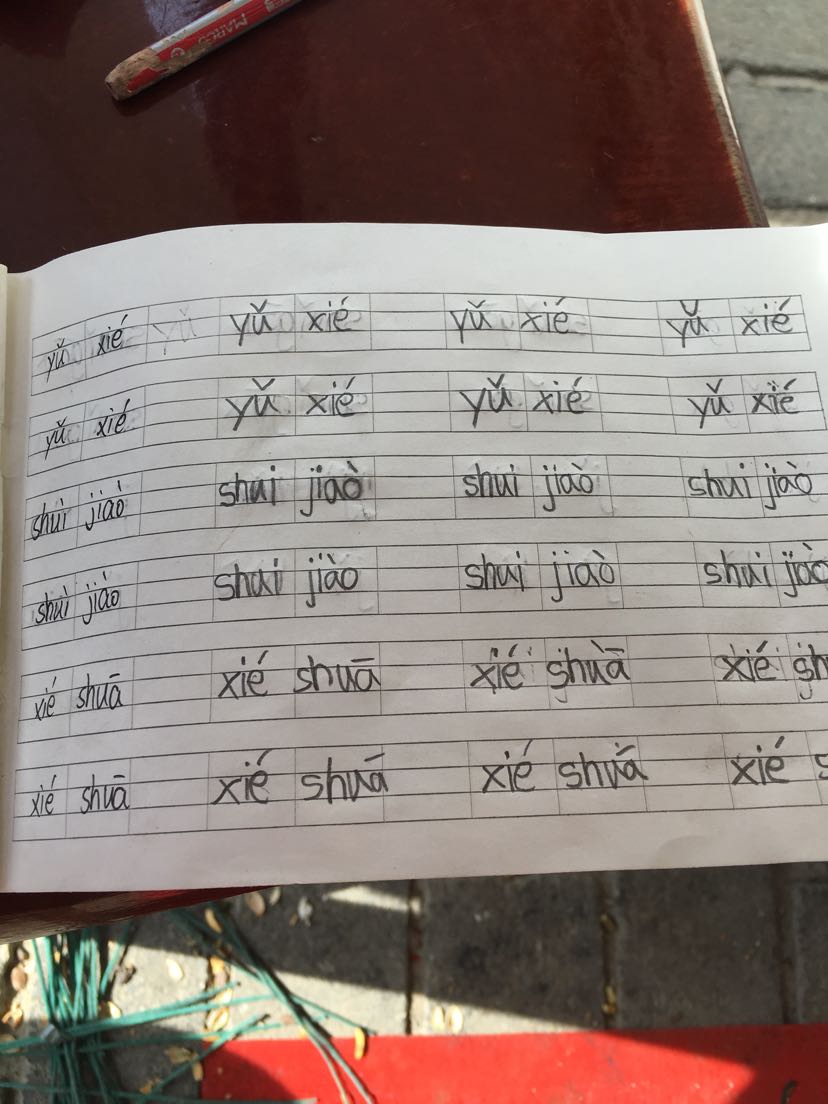 MARCO
yǔ xié yǔ yǔ xié yǔ xié yǔ xié
yǔ xié yǔ xié yǔ xié yǔ xié
shuì jiào shui jiaò shui jiaò shui jiaò
shuì jiào shui jiào shui jiaò shui jiaò
xié shuā xié shuā xié shuā xié
xié shuā xié shuá xié shuǎ xié